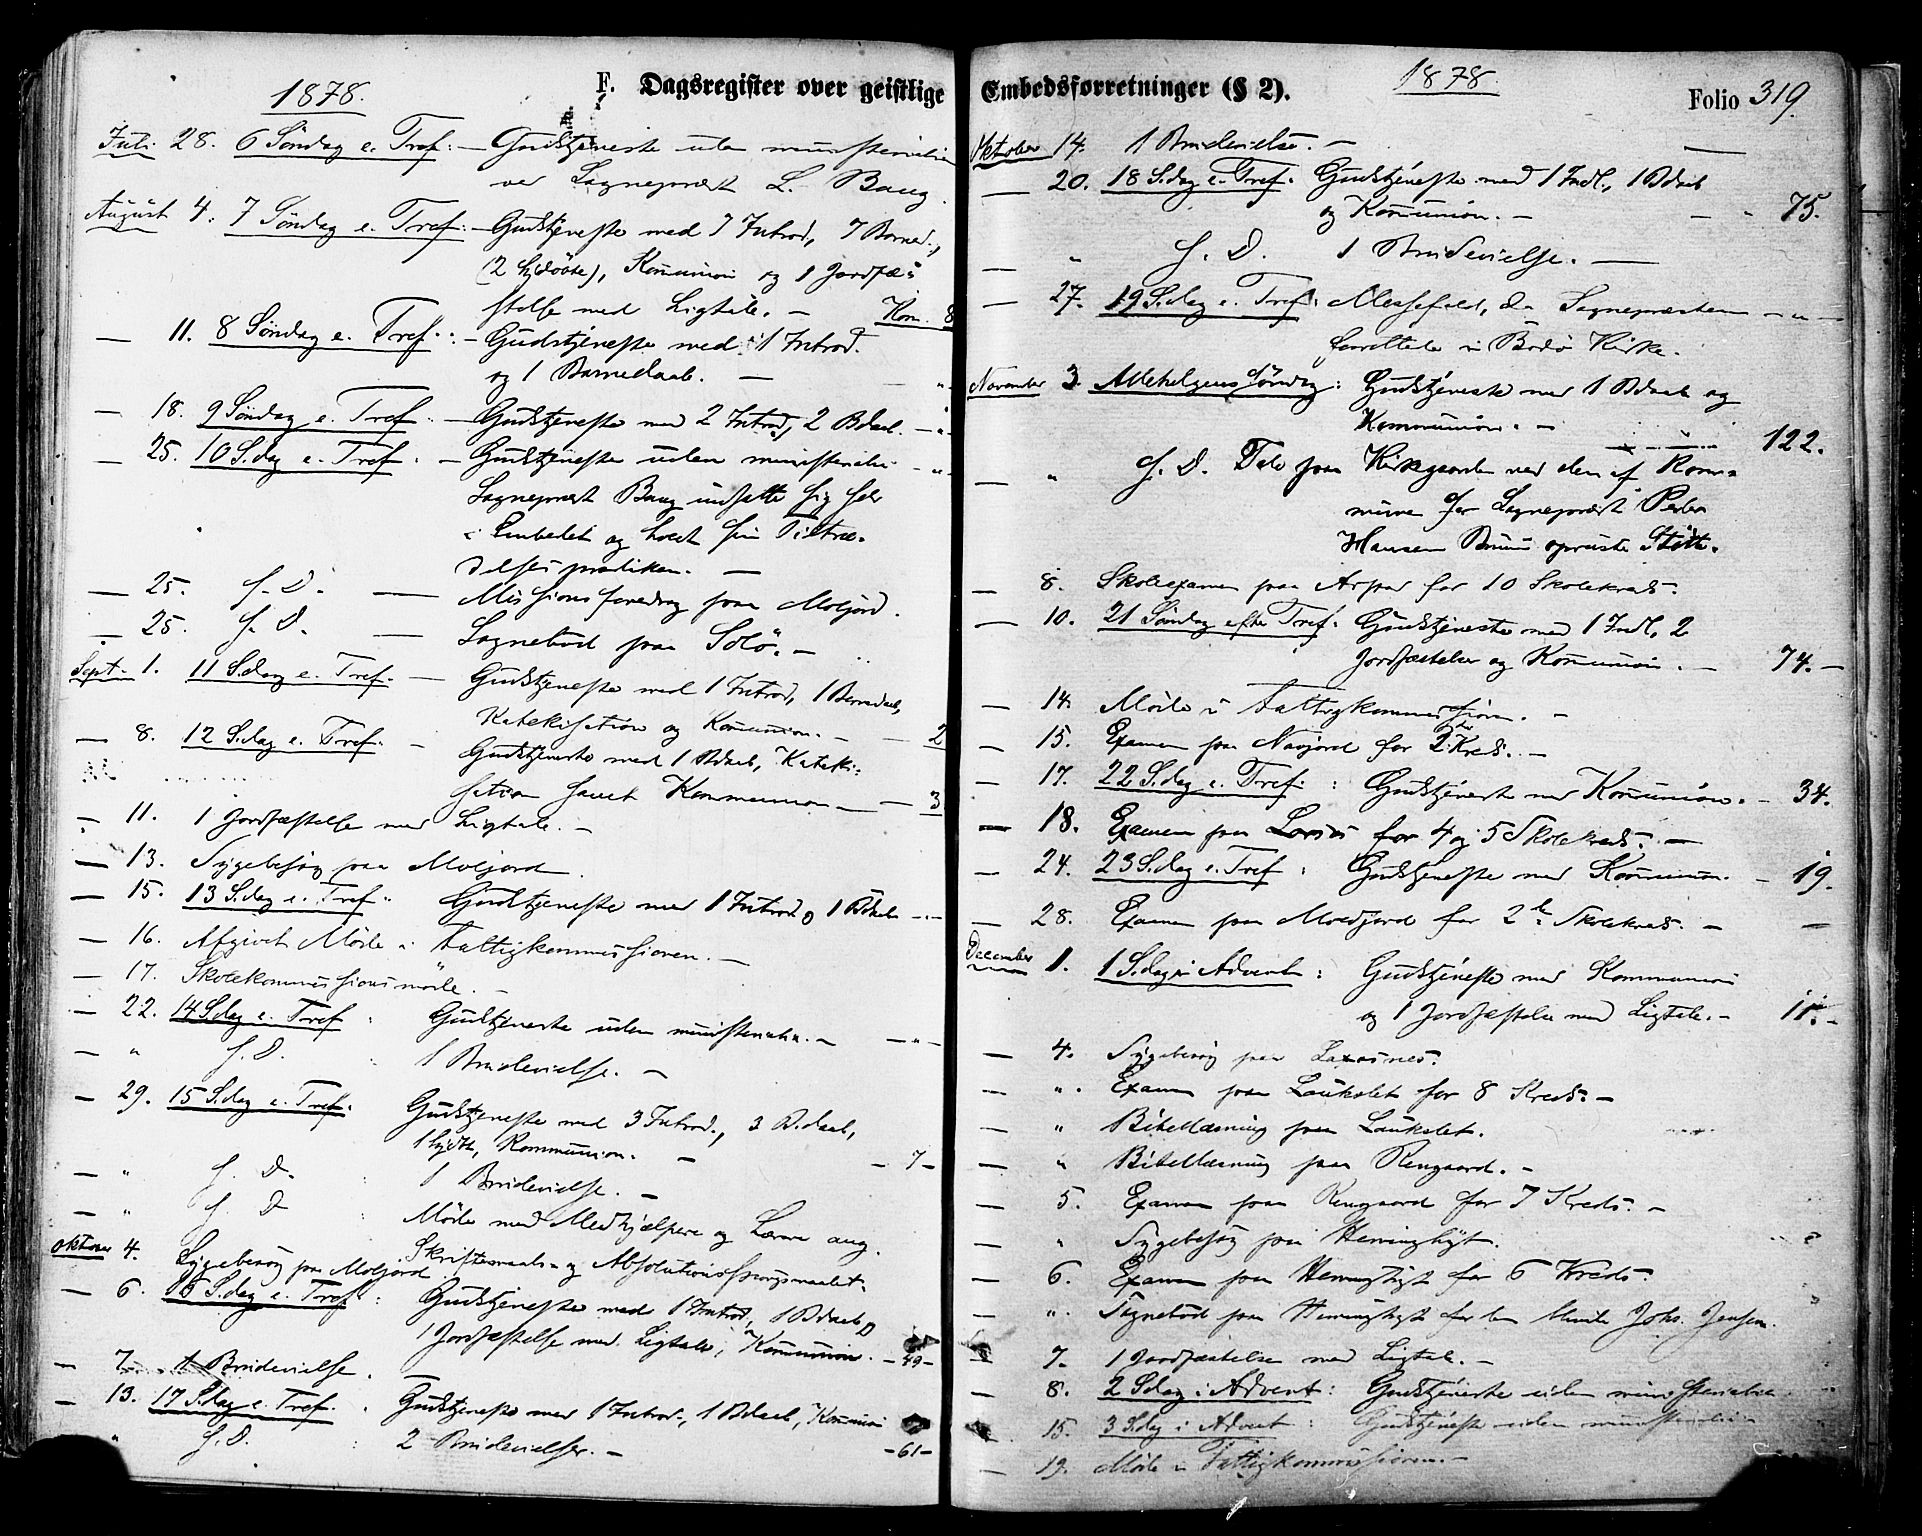 F. Dagsregister over geistlige
1878.
Juli 28. 6 Söndag e. Tref: – Gudstjeneste uden ministerialia
ved Sognepræst L. Baug.
August 4. 7 Söndag e. Tref: – Gudstjeneste med 7 Introd, 7 Barned.,
(2 hjdöbte), Kommunion og 1 Jordfæ-
stelse med Ligtale. – Kom. 8
— 11. 8 Söndag e. Tref: – Gudstjeneste med 1 Introd.
og 1 Barnedaab. — „
— 18. 9 Söndag e. Tref: – Gudstjeneste med 2 Introd, 2 Bdaab. – „ -
— 25. 10 S.dag e. Tref: – Gudstjeneste uden ministerialia – „ -
Sognepræst Baug indsatte sig selv
i Embedet og holdt sin Tiltræ-
delsespræken. —
— 25. S. D. — Missionsforedrag paa Moljord.
— 25. S. D. — Sognebud paa Solö. –
Sept. 1. 11 S.dag e. Tref. — Gudstjeneste med 1 Introd, 1 Barnedaab,
Katekisation og Kommunion. – — 2
— 8. 12 S.dag e. Tref. – Gudstjeneste med 1 Bdaab, Kateki-
sation samt Kommunion — — 3
– 11. 1 Jordfæstelse med Ligtale. –
— 13. Sygebesøg paa Moljord.
— 15. 13 S.dag e. Tref. Gudstjeneste med 1 Introd og 1 Bdaab –„–
– 16. Afgivet Möde i Fattigkommissionen. —
– 17. Skolekommissionsmöde. –
— 22. 14 S.dag e. Tref : Gudstjeneste uden ministerialia. – –„–
– „ S. D. : 1 Brudevielse. –
– 29. 15 S.dag e. Tref. Gudstjeneste med 3 Introd., 3 B.daab,
1 hjdt, Kommunion. – – 7 –
– „ S. D. : 1 Brudevielse. –
– „ S. D : Möde med Medhjælpere og Lærere ang.
Skriftemaals- og Absolutionsspörgsmaalet.
Oktober 4. Sygebesög paa Moljord.
– 6. 16 S.dag e. Tref : Gudstjeneste med 1 Introd, 1 Bdaab og
1 Jordfæstelse med Ligtale, Kommunion. – 49 –
– 7. 1 Brudevielse. —
– 13. 17 S.dag e. Tref. : Gudstjeneste med 1 Introd., 1 Bdaab, Kommuni
„ S. D. : 2 Brudevielser. – – 61 –
Embedsforretninger (§ 2).
1878.
Folio 319.
Oktober 14. 1 Brudevielse. – —
— 20. 18 S.dag e. Tref. Gudstjeneste med 1 Indl., 1 Bdaab
og Kommunion. – – „ 75.
— „ S. D. 1 Brudevielse. —
— 27. 19 S.dag e. Tref: Messefald, da Sognepræsten – „ –
forrettede i Bodö Kirke.
November 3. Allehelgenssöndag: Gudstjeneste med 1 Bdaab og
Kommunion. – 122.
— „ S. D. Tale paa Kirkegaarden ved den af Kom-
mune for Sognepræst Peder
Hansen Bruun opreiste Stötte.
— 8. Skoleexamen paa Arstad for 10 Skolekreds.
— 10. 21 Söndag efter Tref. Gudstjeneste med 1 Indl, 2
Jordfæstelser og Kommunion. – 74. –
— 14. Möde i Fattigkommissionen. –
– 15. Examen paa Navjord for 2 Kreds. –
– 17. 22 S.dag e. Tref. : Gudstjeneste med Kommunion. – 34.
— 18. Examen paa for 4 og 5 Skolekreds. –
– 24. 23 S.dag e. Tref : Gudstjeneste med Kommunion. – 19.
— 28. Examen paa Moldjord for 2de Skolekreds. – –
December 1. 1 S.dag i Advent : Gudstjeneste med Kommunion
og 1 Jordfæstelse med Ligtale. – 11. –
— 4. Sygebesög paa Laxosnes.
— „. Examen paa Laukslet for 8 Kreds. –
— „ Bibellæsning paa Laukslet.
— „ Bibellæsning paa Rengaard. –
— 5. Examen paa Rengaard for 7 Kreds. –
— „ Sygebesög paa Hemminghyt.
– 6. Examen paa for 6 Kreds.
– „. Sognebud paa for den blinde Johs. Jensen.
— 7. 1 Jordfæstelse med Ligtale. –
— 8. 2 S.dag i Advent : Gudstjeneste uden ministerialia.
— 15. 3 S.dag i Advent : Gudstjeneste uden ministerialia.
— 19. Möde i Fattigkommissionen. –